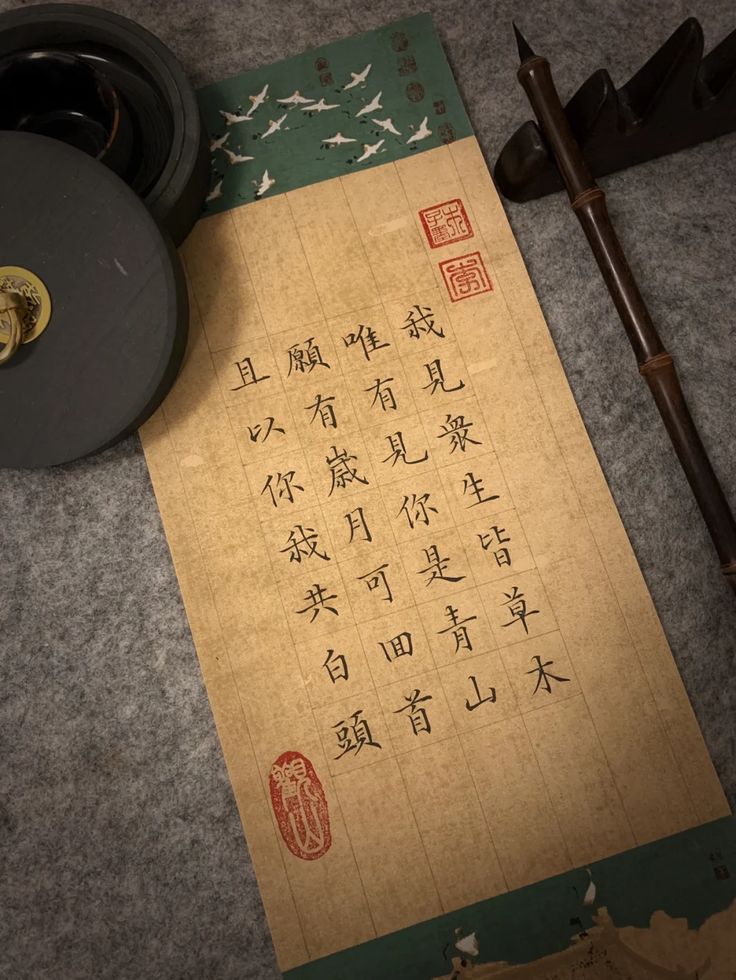 我見衆生皆草木
唯有見你是青山
願有歳月可回首
且以你我共白頭
觀山